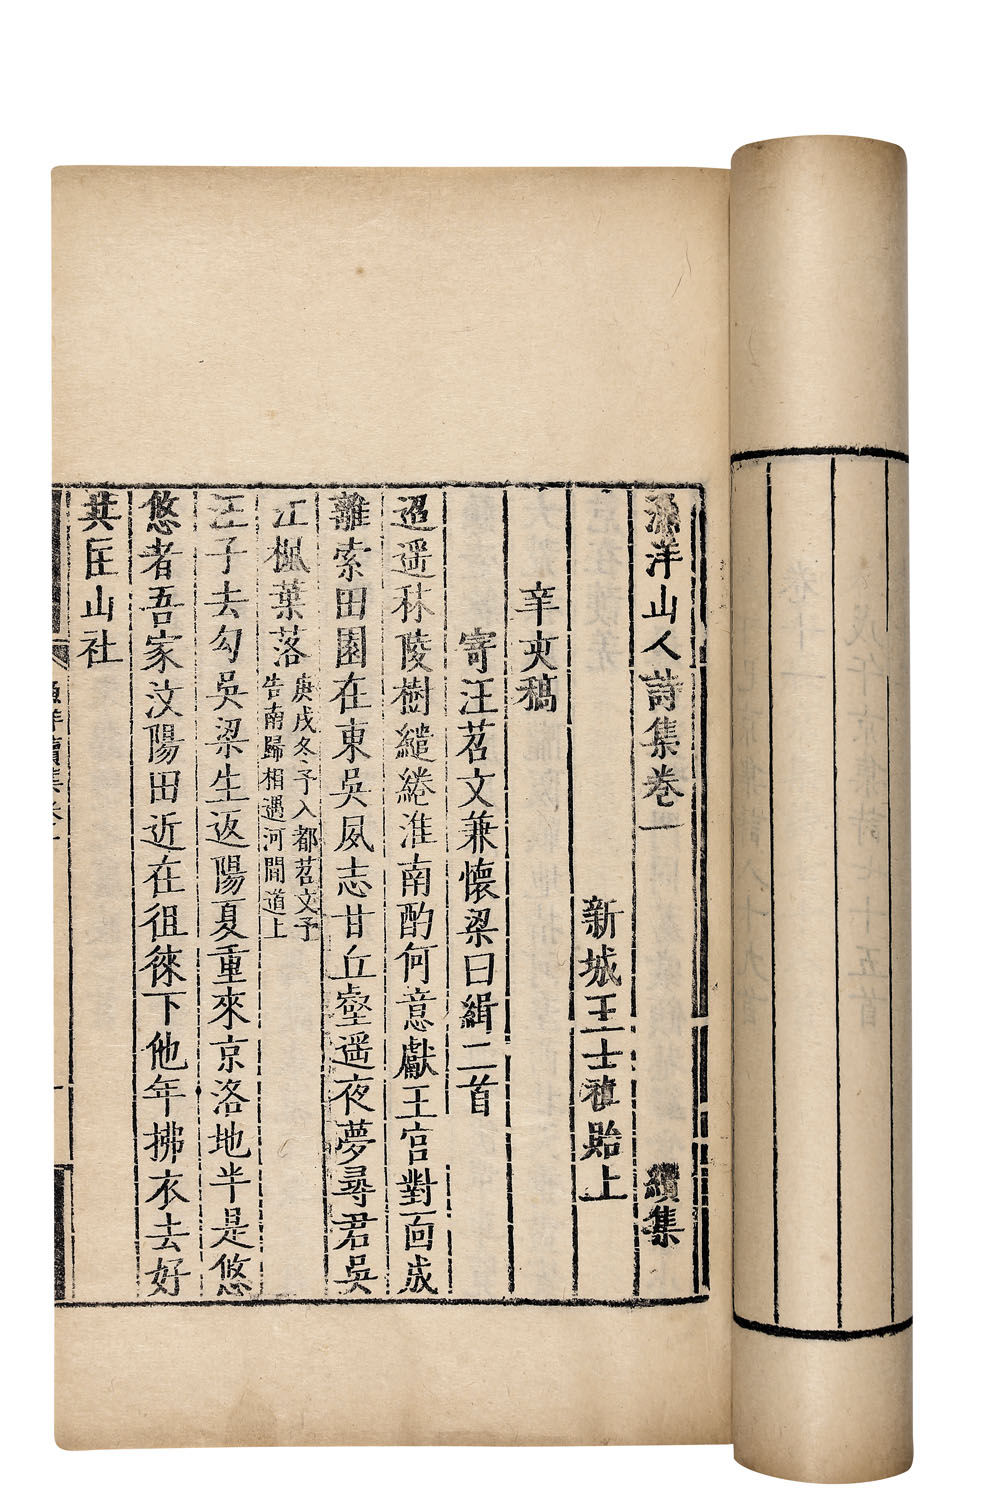 漁洋山人詩集卷一 續集
新城王士禛貽上
辛亥稿
寄汪苕文兼懷梁曰緝二首
迢遥秣陵樹繾綣淮南酌何意獻王宫對面成
離索田園在東吳夙志甘丘壑遥夜夢尋君吳
江楓葉落庚戌冬予入都苕文予
告南歸相遇河間道上
汪子去勾吳梁生返陽夏重來京洛地半是悠
悠者吾家汶陽田近在徂徠下他年拂衣去好
共匡山社
漁洋續集卷一
一